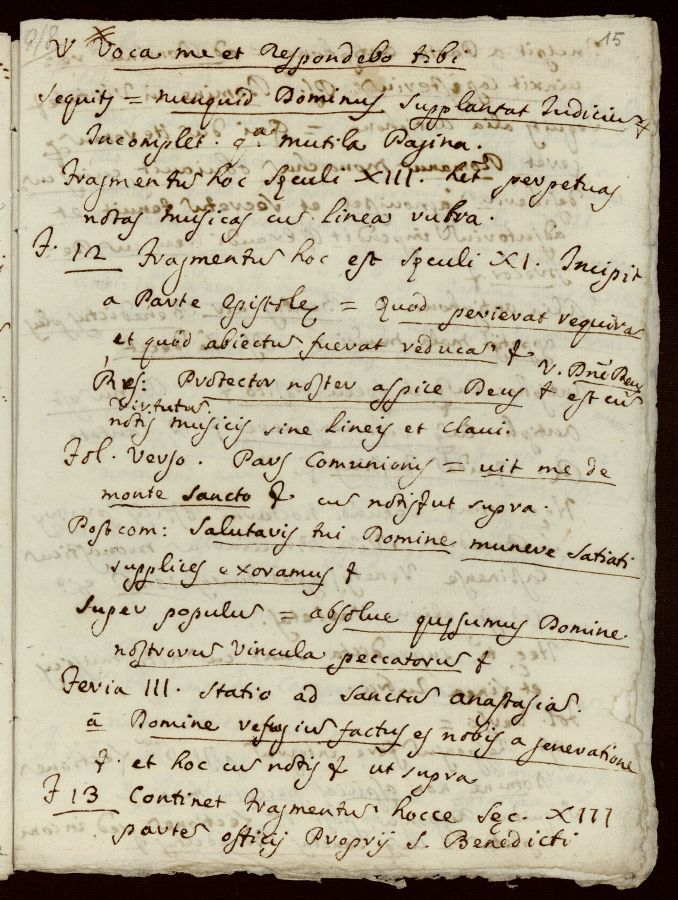 15
V Voca me et Respondebo tibi
Sequitʒ = nunquid Dominus Supplantat Judiciũ &
Incomplet. qᵃ mutila Pagina.
Fragmentũ hoc Sęculi XIII. het perpetuas
notas musicas cũ linea rubra.
F. 12 Fragmentũ hoc est Sęculi XI. Incipit
a Parte Epistolę = Quod perierat requiras
et quod abiectũ fuerat reducas &
Res: Protector noster aspice Deus & V. Dñe Deus
virtutũ est cũ
notis musicis sine Lineis et Claui.
Fol. Verso. Pars Comunionis = uit me de
monte Sancto & cũ notis & ut supra.
Postcom: Salutaris tui Domine munere Satiati
supplices exoramus &
Super populũ = absolue quęsumus Domine
nostrorũ Vincula peccatorũ &
Feria III. Statio ad Sanctã Anastasiã.
ā Domine refugiũ factus es nobis a generatione
&. et hoc cũ notis & ut supra
F 13 Continet Fragmentũ hocce Sęc. XIII
partẽ officij Proprij S. Benedicti